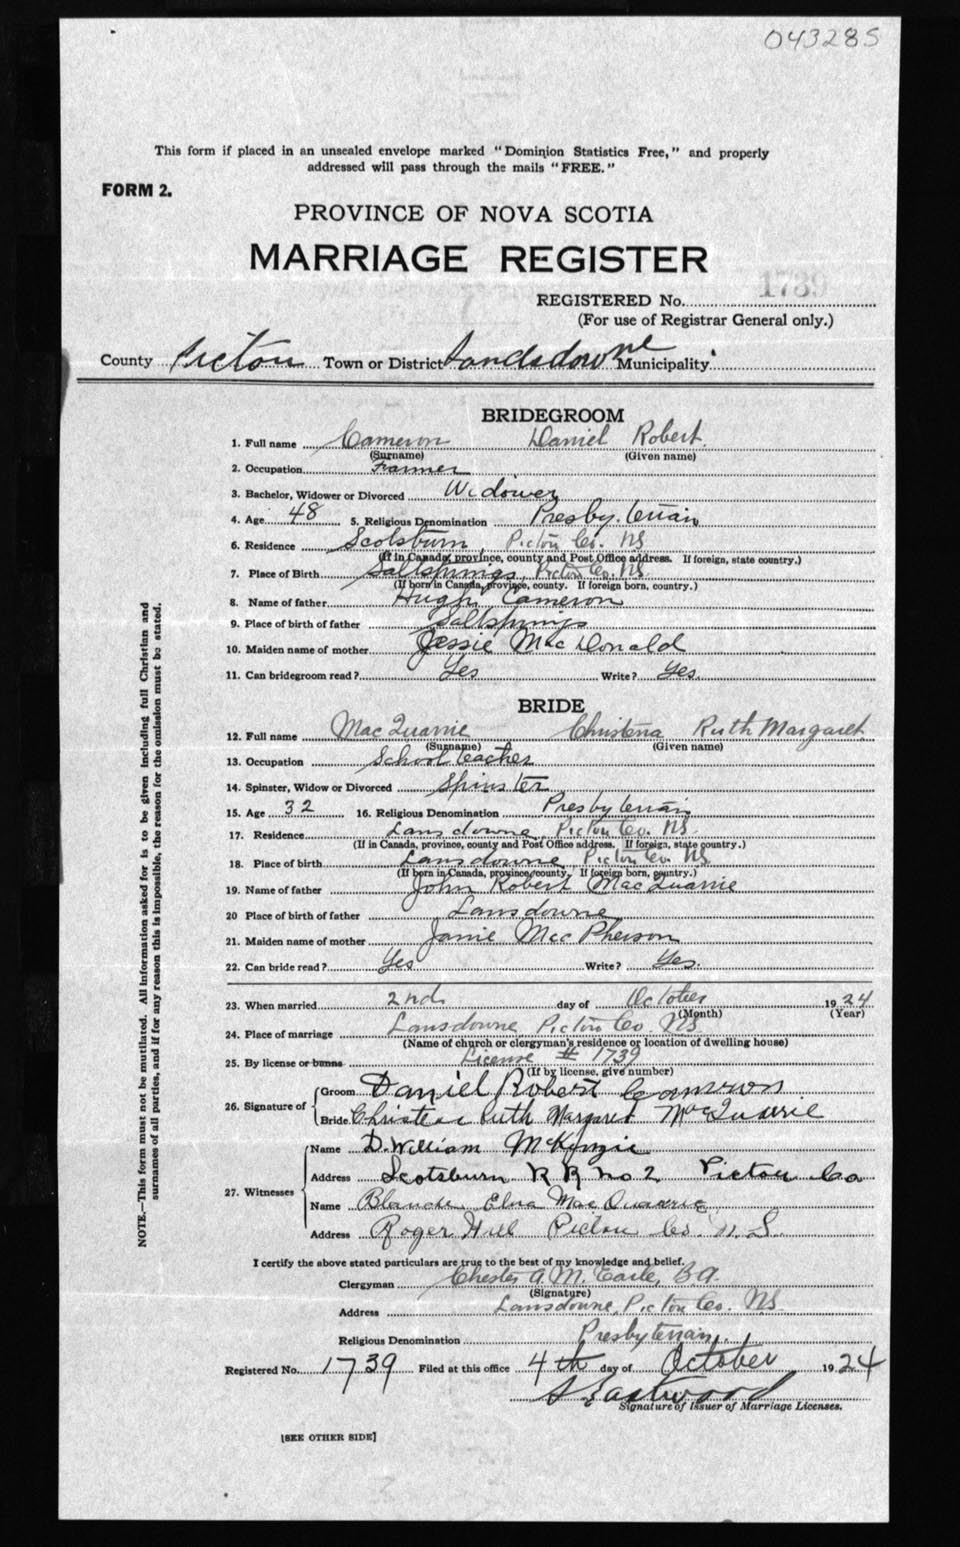 043285
This form if placed in an unsealed envelope marked "Dominion Statistics Free," and properly
addressed will pass through the mails "FREE."
FORM 2.
PROVINCE OF NOVA SCOTIA
MARRIAGE REGISTER
REGISTERED No. 1739
(For use of Registrar General only.)
County Pictou Town or District Landsdowne Municipality
BRIDEGROOM
1. Full name Cameron Daniel Robert
(Surname) (Given name)
2. Occupation Farmer
3. Bachelor, Widower or Divorced Widower
4. Age 48 5. Religious Denomination Presbyterian
6. Residence Scotsburn Pictou Co. NS
(If in Canada, province, county and Post Office address. If foreign, state country.)
7. Place of Birth Saltsprings, Pictou Co. NS
(If born in Canada, province, county. If foreign born, country.)
8. Name of father Hugh Cameron
9. Place of birth of father Saltsprings
10. Maiden name of mother Jessie MacDonald
11. Can bridegroom read? Yes Write? Yes.
BRIDE
12. Full name MacQuarrie Christena Ruth Margaret
(Surname) (Given name)
13. Occupation School teacher
14. Spinster, Widow or Divorced Spinster
15. Age 32 16. Religious Denomination Presbyterian
17. Residence Lansdowne, Pictou Co. NS
(If in Canada, province, county and Post Office address. If foreign, state country.)
18. Place of birth Lansdowne Pictou Co. NS
(If born in Canada, province, county. If foreign born, country.)
19. Name of father John Robert MacQuarrie
20 Place of birth of father Lansdowne
21. Maiden name of mother Janie MacPherson
22. Can bride read? Yes Write? Yes.
23. When married 2nd day of October 1924
(Month) (Year)
24. Place of marriage Lansdowne Pictou Co. NS
(Name of church or clergyman's residence or location of dwelling house)
25. By license or banns License # 1739
(If by license, give number)
26. Signature of Groom Daniel Robert Cameron
Bride Christena Ruth Margaret McQuarrie
27. Witnesses Name D. William McKenzie
Address Scotsburn R R No 2 Pictou Co
Name Blanche Edna MacQuarrie
Address Roger Hill Pictou Co. N. S.
I certify the above stated particulars are true to the best of my knowledge and belief.
Clergyman Chester A. M. Earle, B.A.
(Signature)
Address Lansdowne, Pictou Co. NS
Religious Denomination Presbyterian
Registered No. 1739 Filed at this office 4th day of October 1924
S Eastwood
Signature of Issuer of Marriage Licenses.
[SEE OTHER SIDE]
NOTE.—This form must not be mutilated. All information asked for is to be given including full Christian and
surnames of all parties, and if for any reason this is impossible, the reason for the omission must be stated.